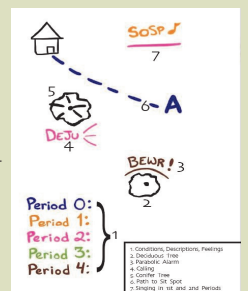 SOSP
7
5
6
A
DEJU
4
BEWR!
3
2
Period 0:
Period 1:
Period 2:
Period 3:
Period 4:
1
1. Conditions, Descriptions, Feelings
2. Deciduous Tree
3. Parabolic Alarm
4. Calling
5. Conifer Tree
6. Path to Sit Spot
7. Singing in 1st and 2nd Periods